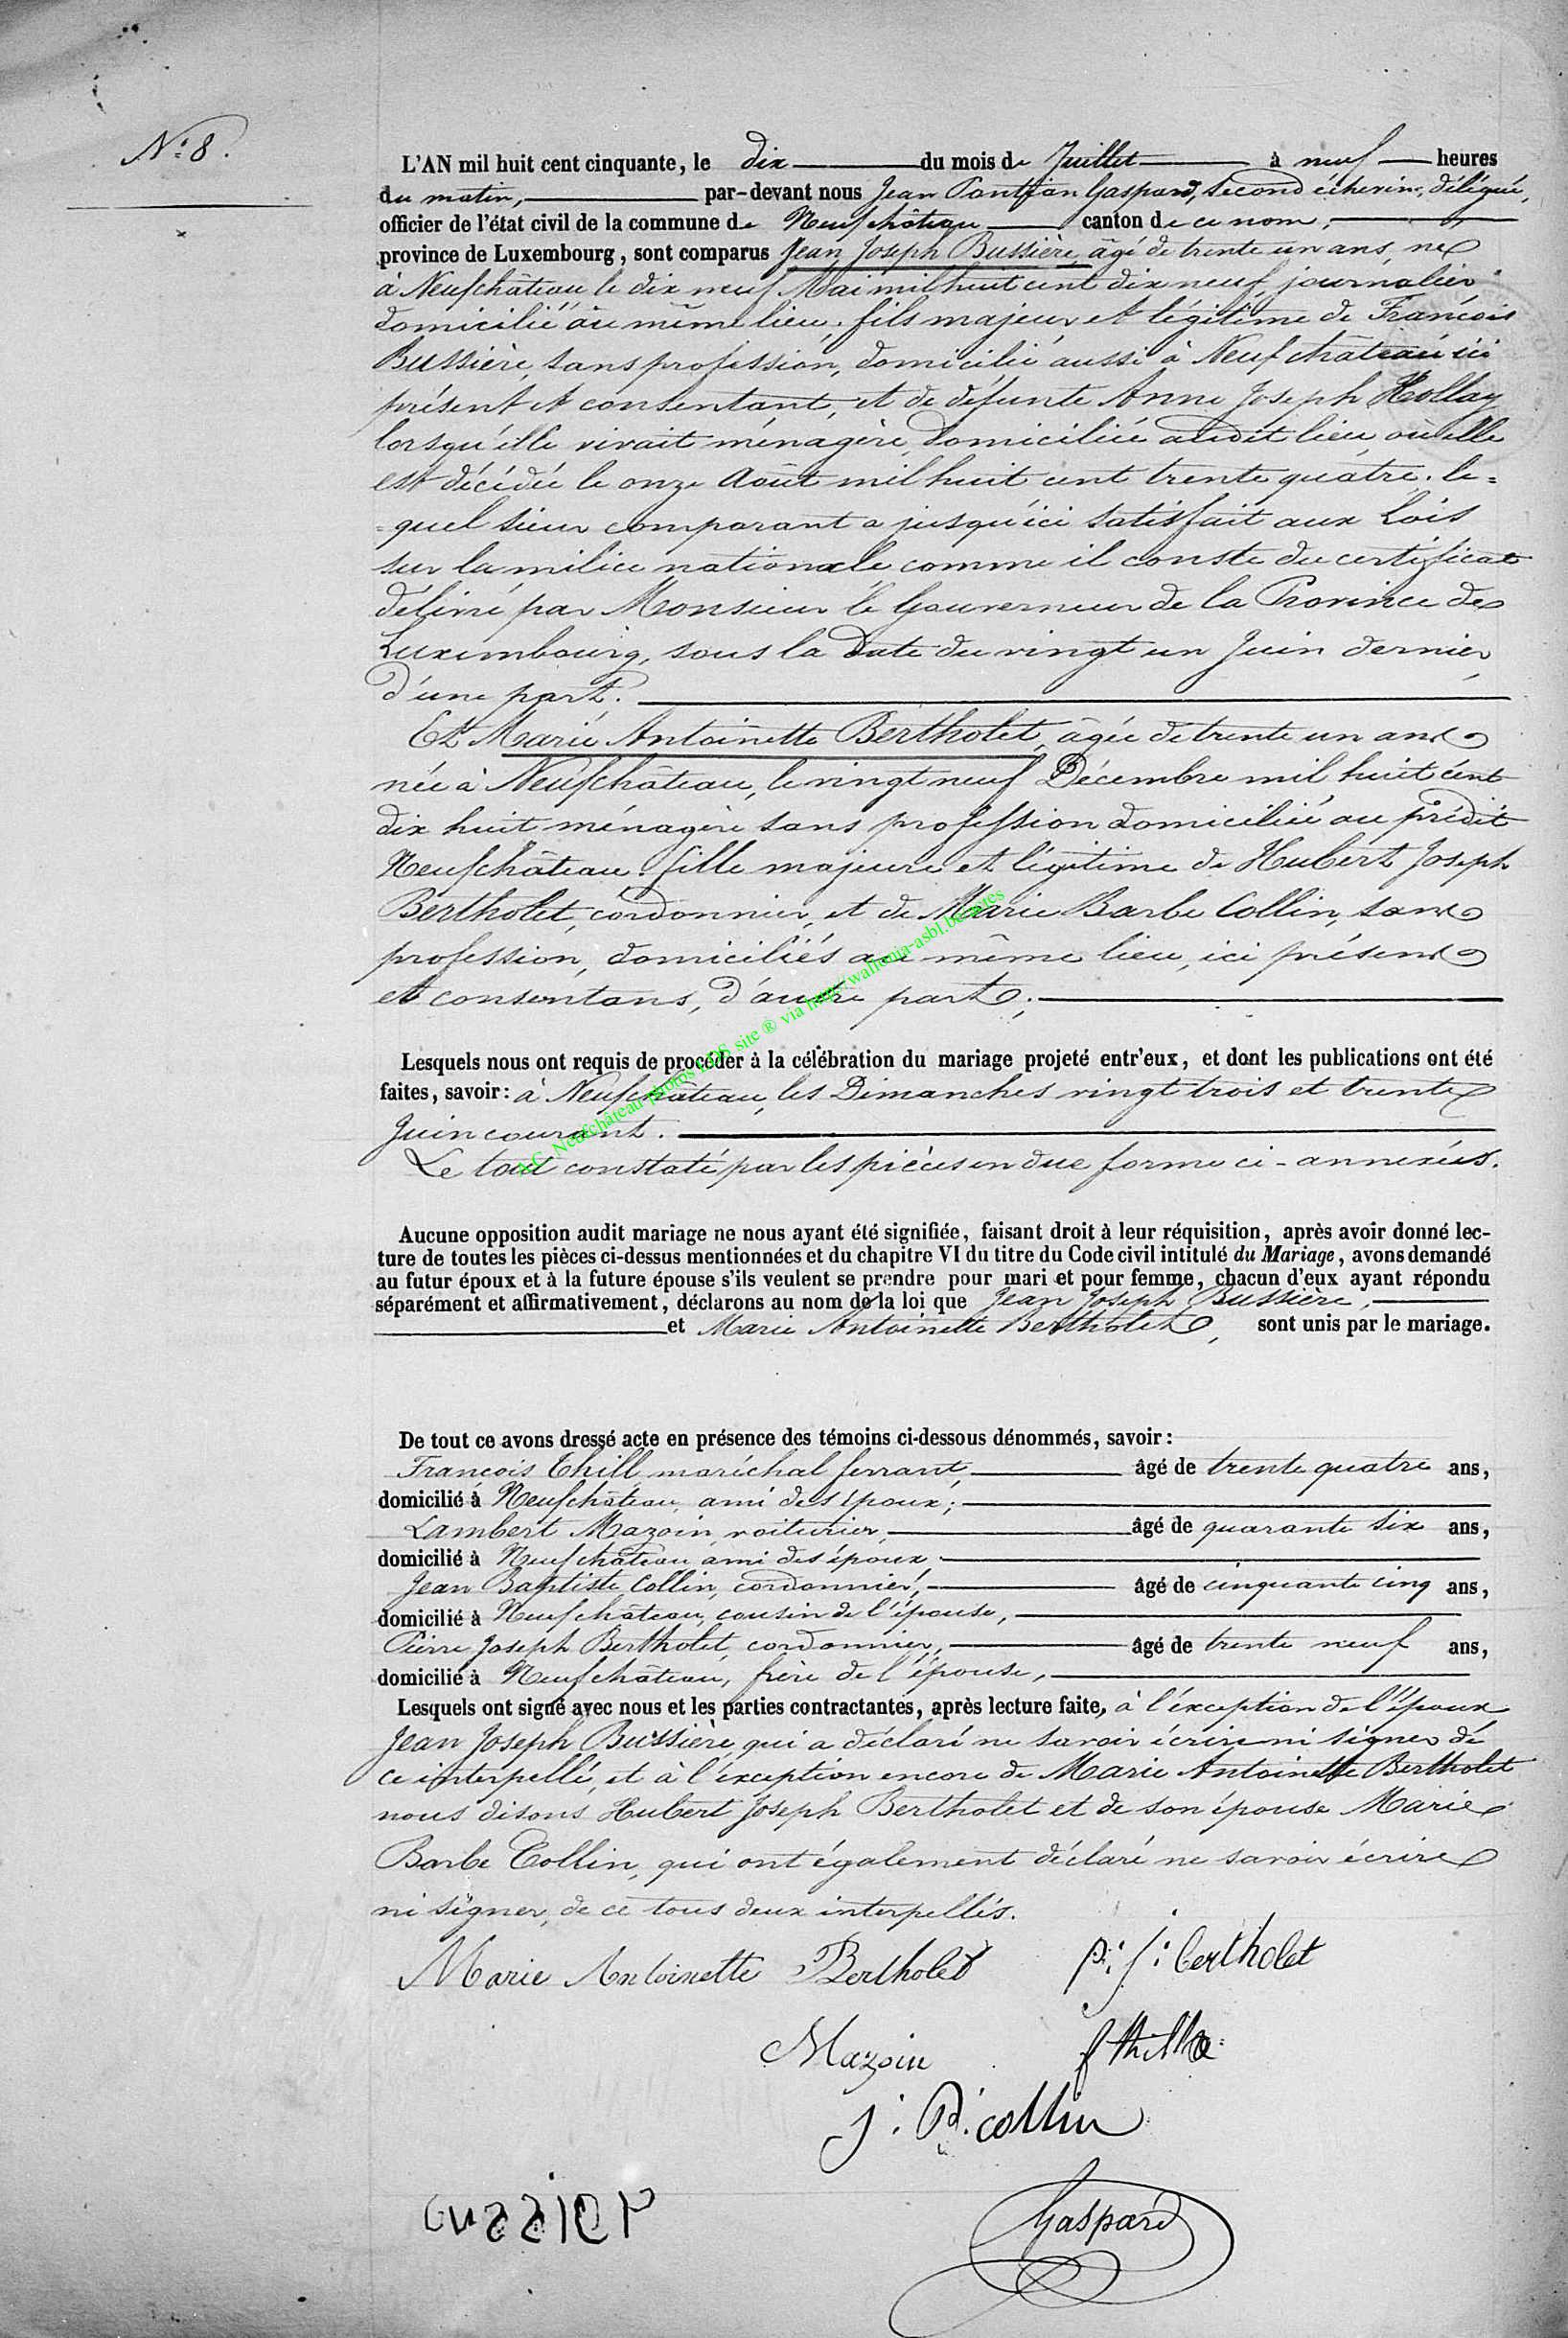 N° 8.
L'AN mil huit cent cinquante, le dix du mois de Juillet à neuf heures
du matin, par-devant nous Jean Gaspard, second échevin, délégué,
officier de l'état civil de la commune de Neufchâteau canton de ce nom,
province de Luxembourg, sont comparus Jean Joseph Bussière, âgé de trente un ans, né
à Neufchâteau le dix neuf Mai mil huit cent dix neuf, journalier
domicilié au même lieu, fils majeur et légitime de François
Bussière, sans profession, domicilié aussi à Neufchâteau ici
présent et consentant, et de défunte Anne Joseph Hollay
lorsqu'elle vivait ménagère, domiciliée audit lieu, où elle
est décédée le onze Août mil huit cent trente quatre. le=
=quel sieur comparant a jusqu'ici satisfait aux Lois
sur la milice nationale comme il conste du certificat
délivré par Monsieur le Gouverneur de la Province de
Luxembourg, sous la Date du vingt un Juin dernier,
d'une part.
Et Marie Antoinette Bertholet, âgée de trente un ans
née à Neufchâteau, le vingt neuf Décembre mil huit cent
dix huit ménagère sans profession domiciliée au prédit
Neufchâteau, fille majeure et légitime de Hubert Joseph
Bertholet, cordonnier, et de Marie Barbe Collin, sans
profession, domiciliés au même lieu, ici présens
et consentans, d'autre part;
Lesquels nous ont requis de procéder à la célébration du mariage projeté entr'eux, et dont les publications ont été
faites, savoir: à Neufchâteau, les Dimanches vingt trois et trente
Juin courant.
Le tout constaté par les pièces en due forme ci-annexées.
A.C. Neufchâteau photos LDS site ® via http://wallonia-asbl.be/actes
Aucune opposition audit mariage ne nous ayant été signifiée, faisant droit à leur réquisition, après avoir donné lec-
ture de toutes les pièces ci-dessus mentionnées et du chapitre VI du titre du Code civil intitulé du Mariage, avons demandé
au futur époux et à la future épouse s'ils veulent se prendre pour mari et pour femme, chacun d'eux ayant répondu
séparément et affirmativement, déclarons au nom de la loi que Jean Joseph Bussière,
et Marie Antoinette Bertholet, sont unis par le mariage.
De tout ce avons dressé acte en présence des témoins ci-dessous dénommés, savoir:
François Thill maréchal ferrant, âgé de trente quatre ans,
domicilié à Neufchâteau, ami des époux;
Lambert Mazoin, voiturier, âgé de quarante six ans,
domicilié à Neufchâteau ami des époux,
Jean Baptiste Collin, cordonnier, âgé de cinquante cinq ans,
domicilié à Neufchâteau, cousin de l'épouse,
Pierre Joseph Bertholet, cordonnier, âgé de trente neuf ans,
domicilié à Neufchâteau, frère de l'épouse,
Lesquels ont signé avec nous et les parties contractantes, après lecture faite, à l'exception de l'époux
Jean Joseph Bussière, qui a déclaré ne savoir écrire ni signer de
ce interpellé, et à l'exception encore de Marie Antoinette Bertholet
nous disons Hubert Joseph Bertholet et de son épouse Marie
Barbe Collin, qui ont également déclaré ne savoir écrire
ni signer, de ce tous deux interpellés.
Marie Antoinette Bertholet P: J: bertholet
Mazoin f thill
J: B: collin
Gaspard